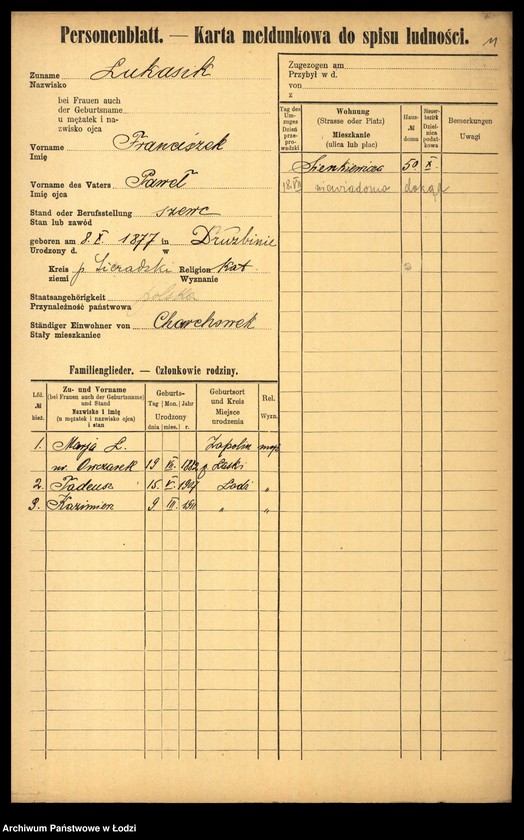 Personenblatt. — Karta meldunkowa do spisu ludności.
11
Zuname Łukasik
Nazwisko
bei Frauen auch
der Geburtsname
u mężatek i na-
zwisko ojca
Vorname Franciszek
Imię
Vorname des Vaters Paweł
Imię ojca
Stand oder Berufsstellung szewc
Stan lub zawód
geboren am 8. X. 1877 in Drużbinie
Urodzony d. w
Kreis p. Sieradzki Religion Kat.
ziemi Wyznanie
Staatsangehörigkeit polska
Przynależność państwowa
Ständiger Einwohner von Charchowek
Stały mieszkaniec
Zugezogen am
Przybył w d.
von
z
Tag des Um-zuges Dzień prze-prowadzki
Wohnung
(Strasse oder Platz)
Mieszkanie
(ulica lub plac)
Haus- № domu
Steuer-bezirk Dzielnica podatk-owa
Bemerkungen
Uwagi
Sienkiewicza 50 X.
18.VII niewiadomo dokąd
Familienglieder. — Członkowie rodziny.
Lfd. № bież.
Zu- und Vorname
(bei Frauen auch der Geburtsname)
und Stand
Nazwisko i imię
(u mężatek i nazwisko ojca)
i stan
Geburts-
Tag Mon. Jahr
Urodzony
dnia mies. r.
Geburtsort
und Kreis
Miejsce
urodzenia
Rel.
Wyzn.
1. Marja Ł. Zapolice
ur. Owczarek 19 1882 p Łaski
2. Tadeusz 15. V. 1907 Łodź „
3. Kazimierz 9 III. 1911 „ „
Archiwum Państwowe w Łodzi